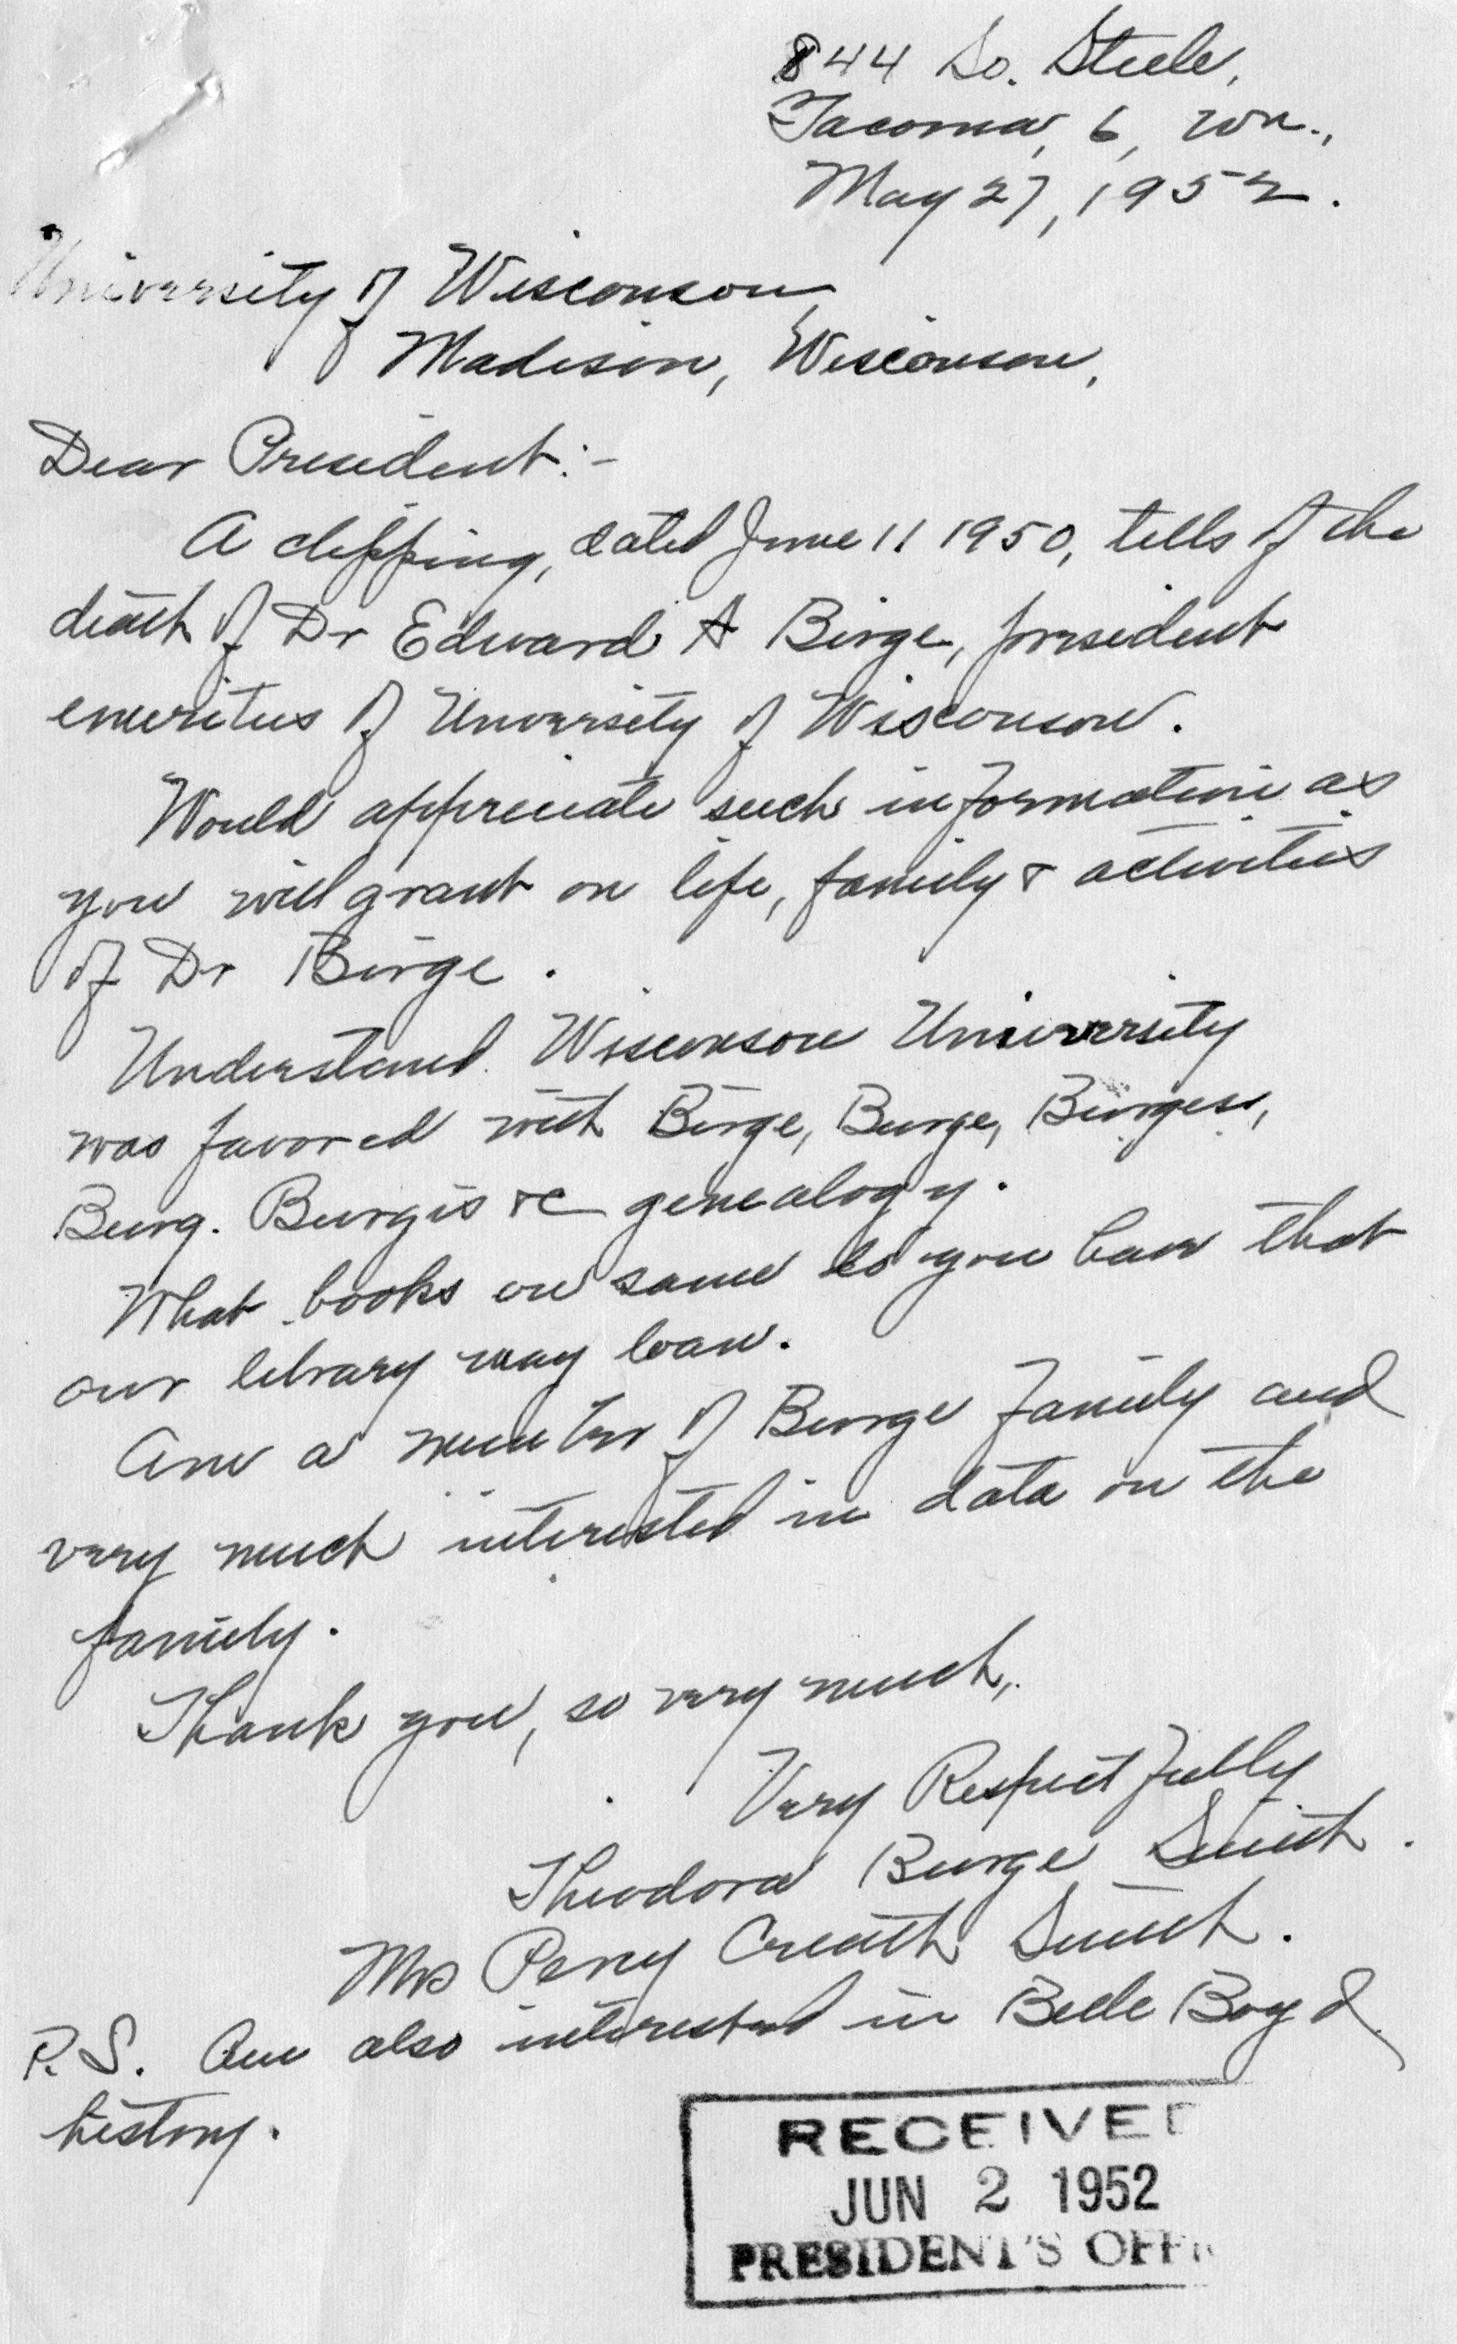 844 So. Steele,
Tacoma, 6, Wn.,
May 27, 1952.
University of Wisconson,
Madison, Wisconson,
Dear President:-
A clipping, dated June 11 1950, tells of the
death of Dr Edward A Birge, president
emeritus of University of Wisconson.
Would appreciate such information as
you will grant on life, family & activities
of Dr Birge.
Understand Wisconson University
was favored with Birge, Burge, Burgess,
Burg. Burgis &c genealogy.
What books on same do you have that
our library may loan.
Am a member of Burge Family and
very much interested in data on the
family.
Thank you, so very much,.
Very Respectfully
Theodora Burge Smith.
Mrs Percy Creath Smith.
P.S. Am also interested in Belle Boyd
history.
RECEIVED
JUN 2 1952
PRESIDENT'S OFFI